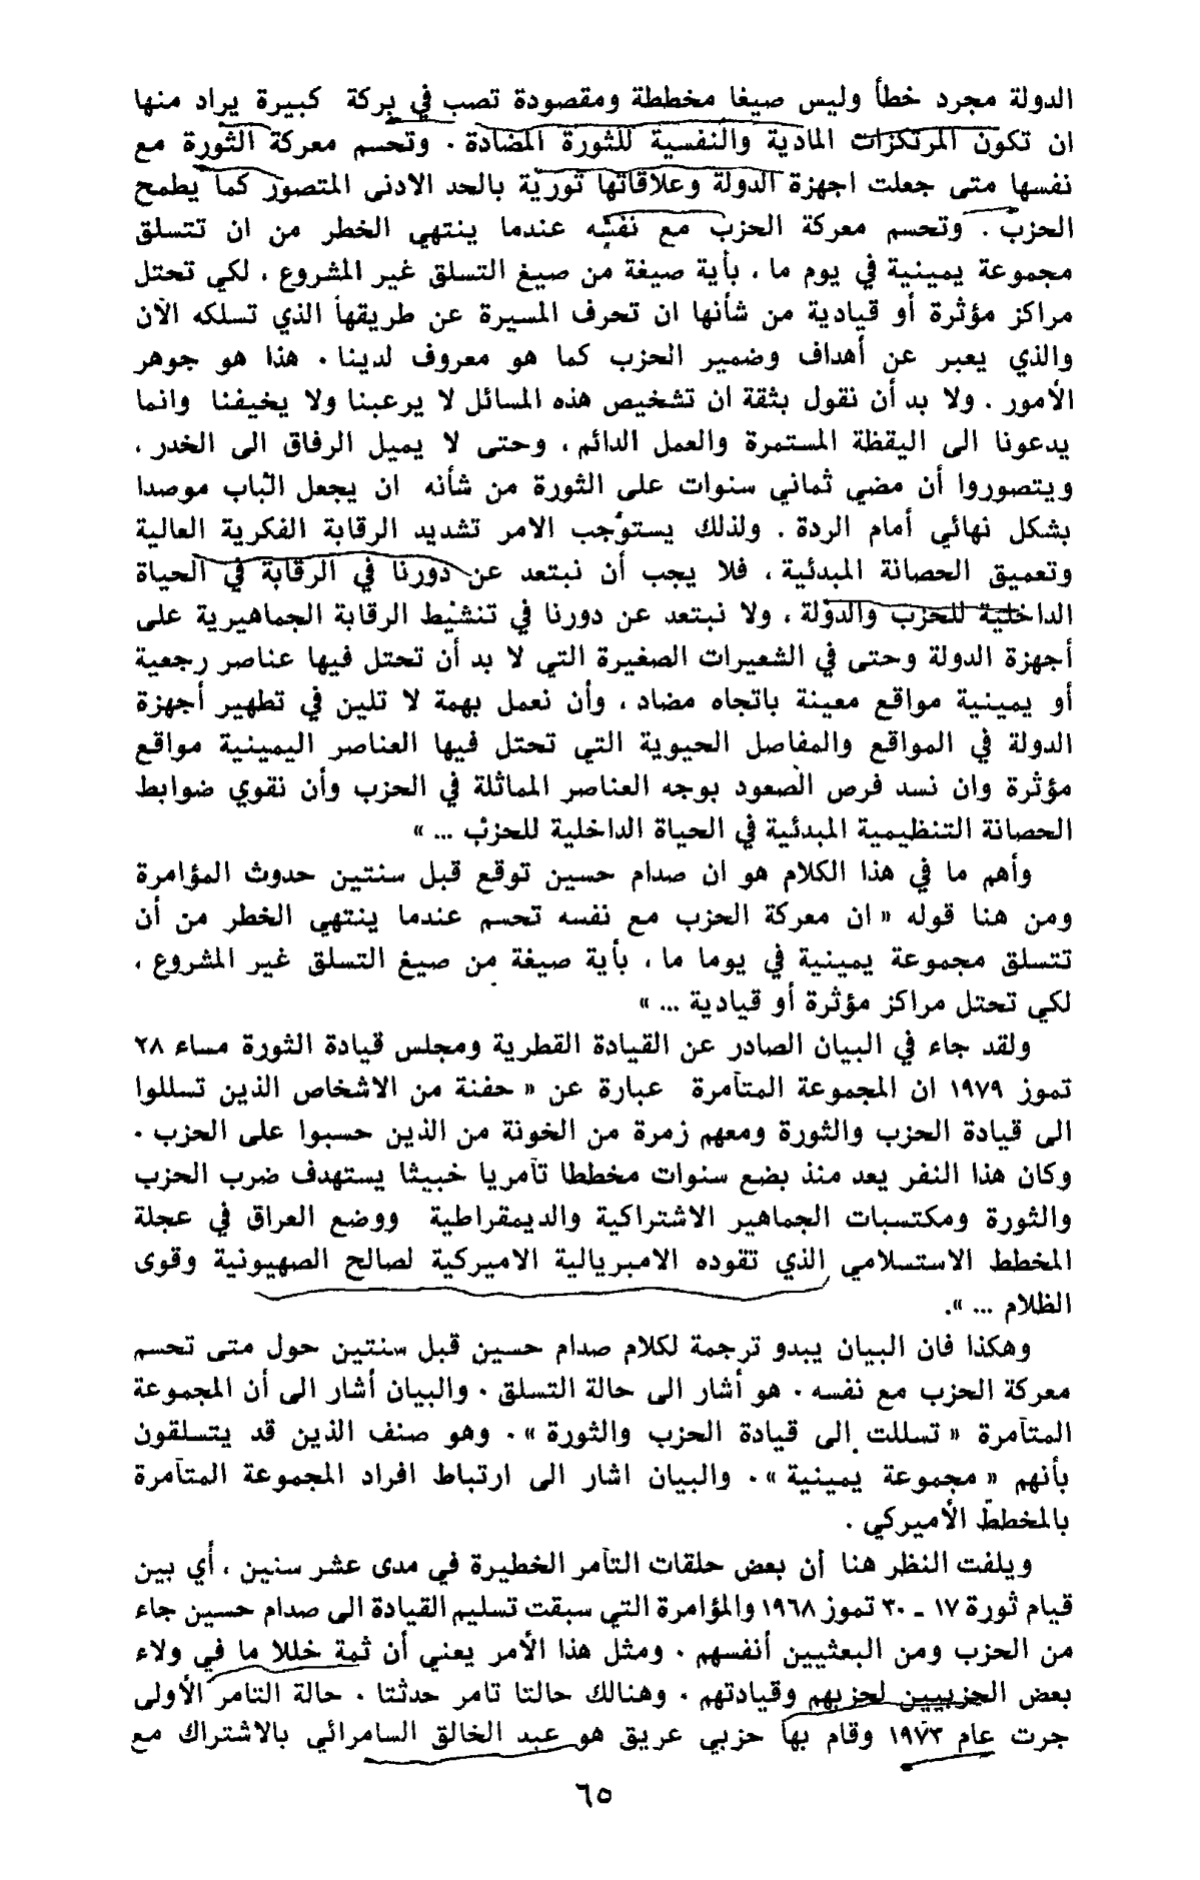 الدولة مجرد خطأ وليس صيغا مخططة ومقصودة تصب في بركة كبيرة يراد منها
ان تكون المرتكزات المادية والنفسية للثورة المضادة . وتحسم معركة الثورة مع
نفسها متى جعلت اجهزة الدولة وعلاقاتها ثورية بالحد الادنى المتصور كما يطمح
الحزب . وتحسم معركة الحزب مع نفسه عندما ينتهي الخطر من ان تتسلق
مجموعة يمينية في يوم ما ، بأية صيغة من صيغ التسلق غير المشروع ، لكي تحتل
مراكز مؤثرة أو قيادية من شأنها ان تحرف المسيرة عن طريقها الذي تسلكه الآن
والذي يعبر عن أهداف وضمير الحزب كما هو معروف لدينا . هذا هو جوهر
الأمور . ولا بد أن نقول بثقة ان تشخيص هذه المسائل لا يرعبنا ولا يخيفنا وانما
يدعونا الى اليقظة المستمرة والعمل الدائم ، وحتى لا يميل الرفاق الى الخدر ،
ويتصوروا أن مضي ثماني سنوات على الثورة من شأنه ان يجعل الباب موصدا
بشكل نهائي أمام الردة . ولذلك يستوجب الامر تشديد الرقابة الفكرية العالية
وتعميق الحصانة المبدئية ، فلا يجب أن نبتعد عن دورنا في الرقابة في الحياة
الداخلية للحزب والدولة ، ولا نبتعد عن دورنا في تنشيط الرقابة الجماهيرية على
أجهزة الدولة وحتى في الشعيرات الصغيرة التي لا بد أن تحتل فيها عناصر رجعية
أو يمينية مواقع معينة باتجاه مضاد ، وأن نعمل بهمة لا تلين في تطهير أجهزة
الدولة في المواقع والمفاصل الحيوية التي تحتل فيها العناصر اليمينية مواقع
مؤثرة وان نسد فرص الصعود بوجه العناصر المماثلة في الحزب وأن نقوي ضوابط
الحصانة التنظيمية المبدئية في الحياة الداخلية للحزب ... »
وأهم ما في هذا الكلام هو ان صدام حسين توقع قبل سنتين حدوث المؤامرة
ومن هنا قوله « ان معركة الحزب مع نفسه تحسم عندما ينتهي الخطر من أن
تتسلق مجموعة يمينية في يوما ما ، بأية صيغة من صيغ التسلق غير المشروع ،
لكي تحتل مراكز مؤثرة أو قيادية ... »
ولقد جاء في البيان الصادر عن القيادة القطرية ومجلس قيادة الثورة مساء ٢٨
تموز ١٩٧٩ ان المجموعة المتآمرة عبارة عن « حفنة من الاشخاص الذين تسللوا
الى قيادة الحزب والثورة ومعهم زمرة من الخونة من الذين حسبوا على الحزب .
وكان هذا النفر يعد منذ بضع سنوات مخططا تآمريا خبيثا يستهدف ضرب الحزب
والثورة ومكتسبات الجماهير الاشتراكية والديمقراطية ووضع العراق في عجلة
المخطط الاستسلامي الذي تقوده الامبريالية الاميركية لصالح الصهيونية وقوى
الظلام ... ».
وهكذا فان البيان يبدو ترجمة لكلام صدام حسين قبل سنتين حول متى تحسم
معركة الحزب مع نفسه . هو أشار الى حالة التسلق . والبيان أشار الى أن المجموعة
المتآمرة « تسللت الى قيادة الحزب والثورة » . وهو صنف الذين قد يتسلقون
بأنهم « مجموعة يمينية » . والبيان اشار الى ارتباط افراد المجموعة المتآمرة
بالمخطط الأميركي .
ويلفت النظر هنا أن بعض حلقات التآمر الخطيرة في مدى عشر سنين ، أي بين
قيام ثورة ١٧ ـ ٣٠ تموز ١٩٦٨ والمؤامرة التي سبقت تسليم القيادة الى صدام حسين جاء
من الحزب ومن البعثيين أنفسهم . ومثل هذا الأمر يعني أن ثمة خللا ما في ولاء
بعض الحزبيين لحزبهم وقيادتهم . وهنالك حالتا تامر حدثتا . حالة التامر الأولى
جرت عام ١٩٧٣ وقام بها حزبي عريق هو عبد الخالق السامرائي بالاشتراك مع
٦٥